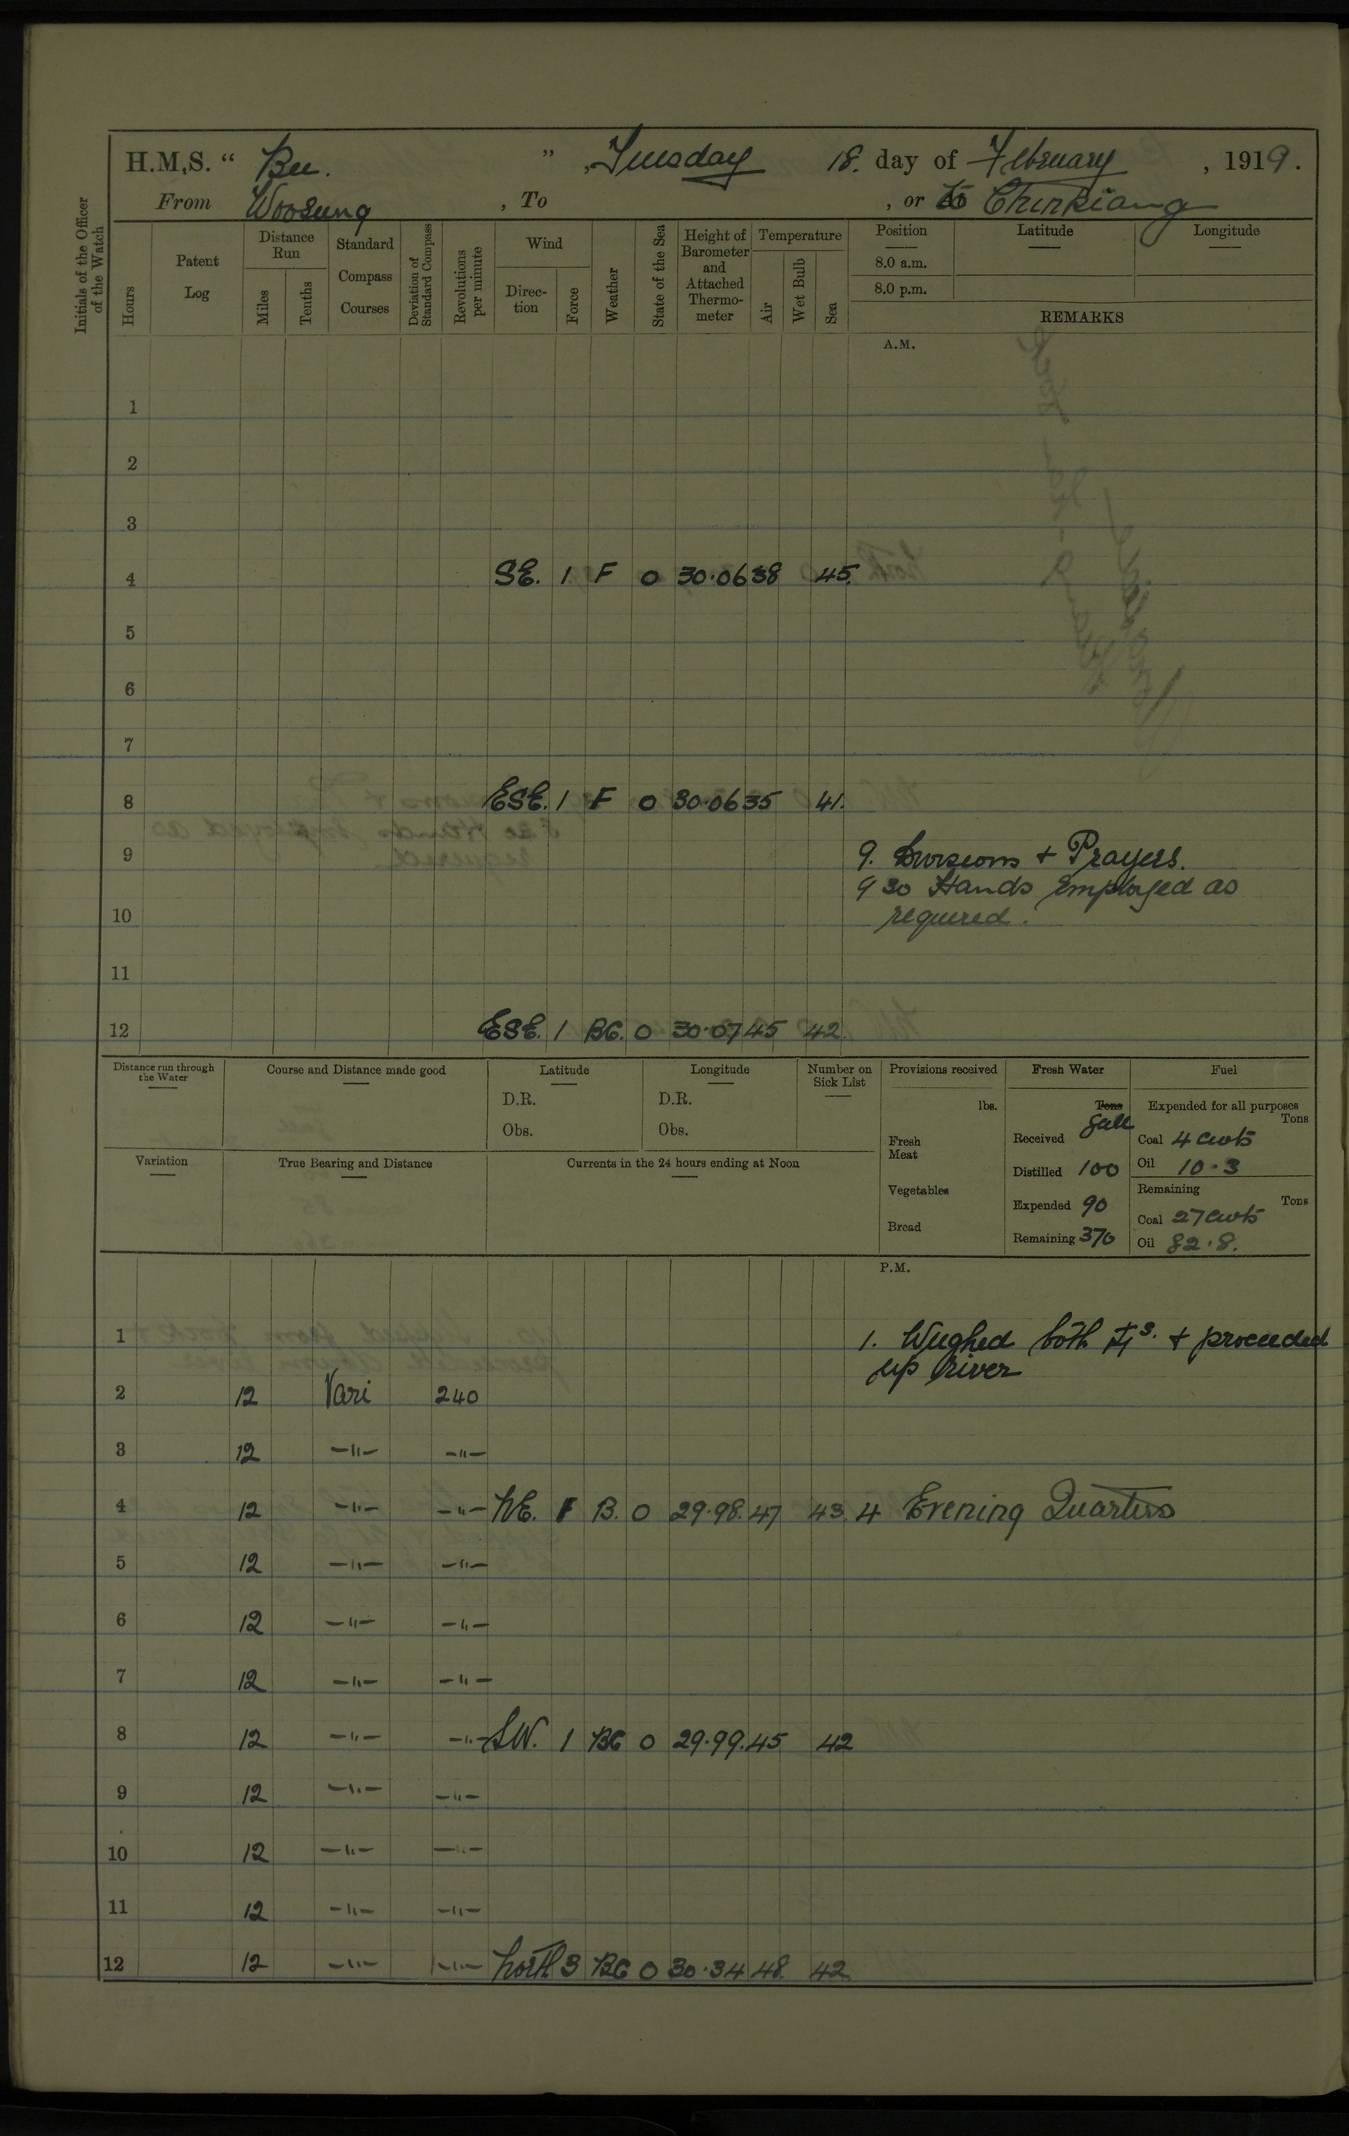 H.M.S. “ Bee. ” , Tuesday 18. day of February , 1919.
From Woosung , To , or to Chinkiang
Initials of the Officer of the Watch
Hours
Patent Log
Distance Run
Miles
Tenths
Standard Compass Courses
Deviation of Standard Compass
Revolutions per minute
Wind
Direc-tion
Force
Weather
State of the Sea
Height of Barometer and Attached Thermo-meter
Temperature
Air
Wet Bulb
Sea
Position
8.0 a.m.
8.0 p.m.
Latitude
Longitude
REMARKS
A.M.
1
2
3
4 SE. 1 F 0 30.06 38 45.
5
6
7
8 ESE. 1 F 0 30.06 35 41.
9 9. Divisions + Prayers.
9 30 Hands Employed as
10 required.
11
12 ESE. 1 BC. 0 30.07 45 42.
Distance run through the Water
Course and Distance made good
Latitude
D.R.
Obs.
Longitude
D.R.
Obs.
Number on Sick List
Variation
True Bearing and Distance
Currents in the 24 hours ending at Noon
Provisions received
lbs.
Fresh Meat
Vegetables
Bread
Fresh Water
Tons
Gall
Received
Distilled 100
Expended 90
Remaining 370
Fuel
Expended for all purposes
Tons
Coal 4 cwts
Oil 10.3
Remaining
Tons
Coal 27 cwts
Oil 82.8.
P.M.
1 1. Weighed both ⚓s. + proceeded
up river
2 12 Vari 240
3 12 —"— —"—
4 12 —"— —"— NE. 1 B. 0 29.98. 47 43. 4 Evening Quarters
5 12 —"— —"—
6 12 —"— —"—
7 12 —"— —"—
8 12 —"— —"— SW. 1 BC 0 29.99. 45 42
9 12 —"— —"—
10 12 —"— —"—
11 12 —"— —"—
12 12 —"— —"— North 3 BC 0 30.34 48. 42